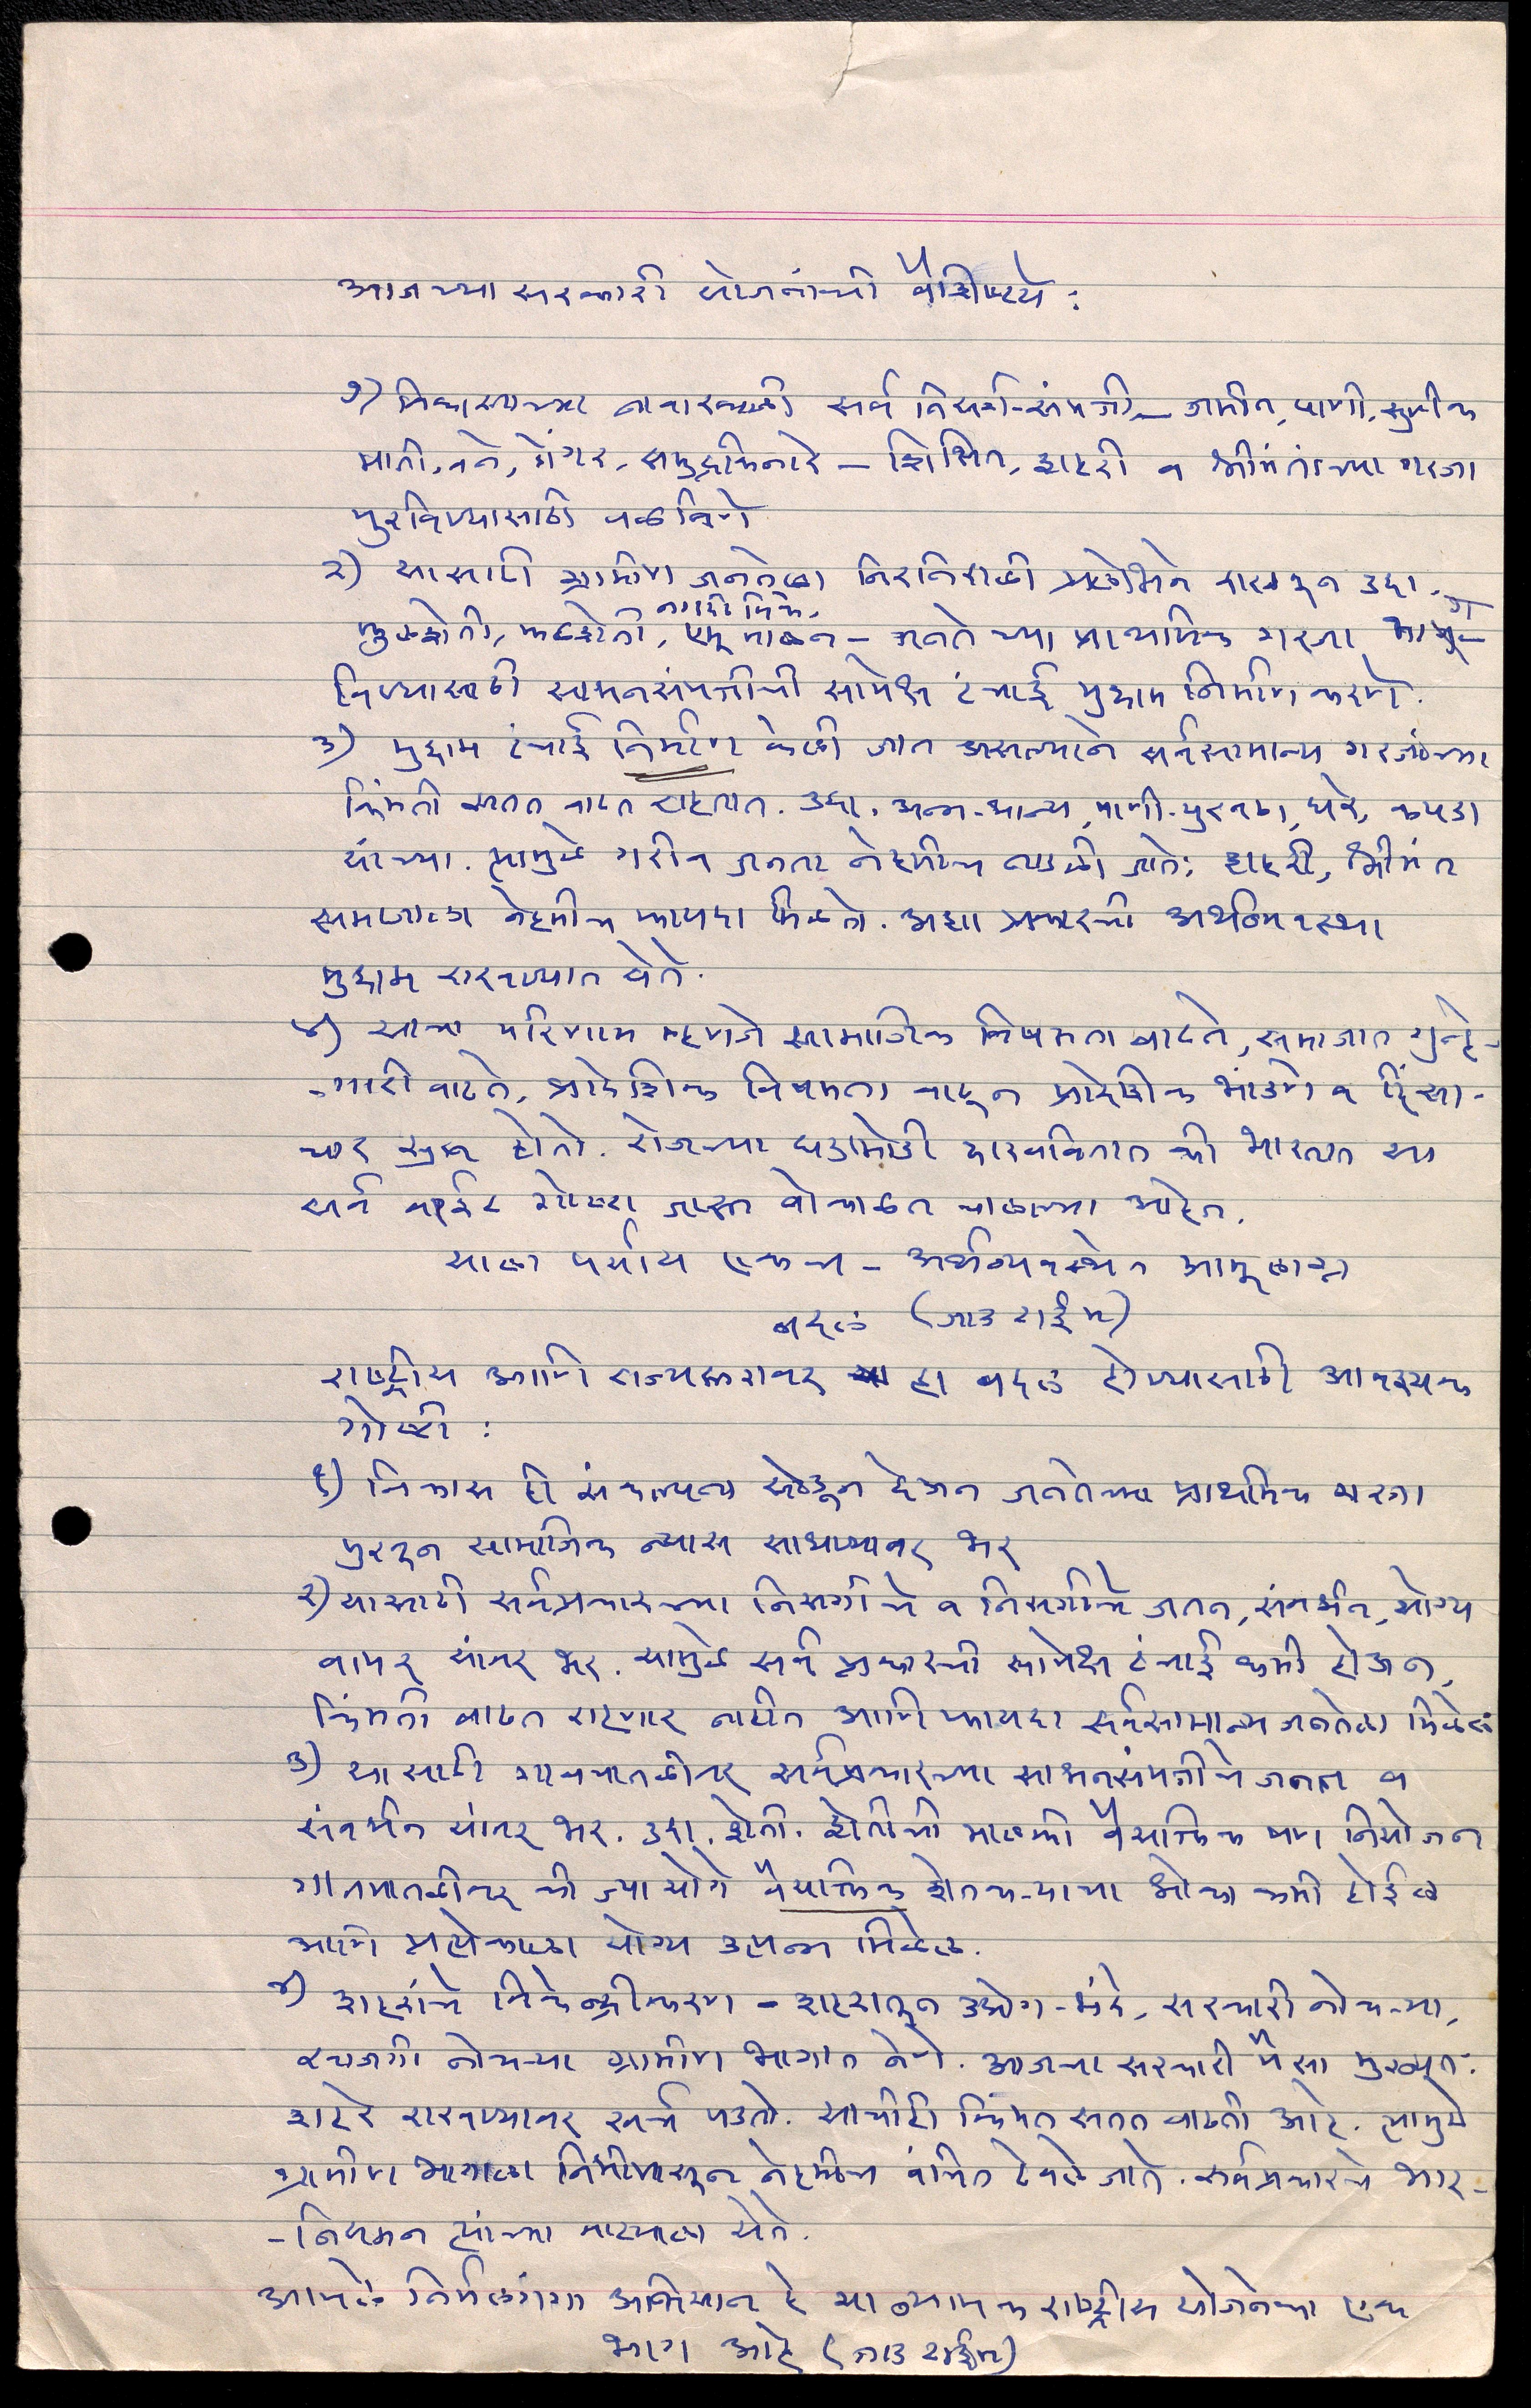 आजच्या सरकारी योजनांची वैशिष्ट्ये :
१) विकासाच्या नावाखाली सर्व निसर्ग-संपत्ती – जमीन, पाणी, सुपीक
माती, वने, डोंगर, समुद्रकिनारे – शिक्षित, शहरी व श्रीमंतांच्या गरजा
पुरविण्यासाठी वळविणे
२) यासाठी ग्रामीण जनतेला निरनिराळी प्रलोभने दाखवून उदा.
फुलशेती, फळशेती, पशुपालन – जनतेच्या प्राथमिक गरजा भागवि-
विण्यासाठी साधनसंपत्तीची सापेक्ष टंचाई मुद्दाम निर्माण करणे.
३) मुद्दाम टंचाई निर्माण केली जात असल्याने सर्वसामान्य गरजांच्या
किंमती सतत वाढत राहतात. उदा. अन्न-धान्य, पाणी-पुरवठा, घरे, कपडा
यांच्या. त्यामुळे गरीब जनता नेहमीच नाडली जाते; शहरी, श्रीमंत
समाजाला नेहमीच फायदा मिळतो. अशा प्रकारची अर्थव्यवस्था
मुद्दाम राबवण्यात येते.
४) याचा परिणाम म्हणजे सामाजिक विषमता वाढते, समाजात गुन्हे-
-गारी वाढते, प्रादेशिक विषमता वाढून प्रादेशिक भांडणे व हिंसा-
चार सुरू होतो. रोजच्या घडामोडी दाखवितात की भारतात या
सर्व वाईट गोष्टी जास्त बोकाळत चालल्या आहेत.
याला पर्याय एकच – अर्थव्यवस्थेत आमूलाग्र
बदल (जाड टाईप)
राष्ट्रीय आणि राज्यस्तरावर हा बदल होण्यासाठी आवश्यक
गोष्टी :
१) विकास ही संकल्पना सोडून देऊन जनतेच्या प्राथमिक गरजा
पुरवून सामाजिक न्यास साधण्यावर भर
२) यासाठी सर्वप्रकारच्या निसर्गाचे व निसर्गाचे जतन, संवर्धन, योग्य
वापर यांवर भर. यामुळे सर्व प्रकारची सापेक्ष टंचाई कमी होऊन,
किंमती वाढत राहणार नाहीत आणि फायदा सर्वसामान्य जनतेला मिळेल
३) यासाठी गावपातळीवर सर्वप्रकारच्या साधनसंपत्तीचे जतन व
संवर्धन यांवर भर. उदा. शेती. शेतीची मालकी वैयक्तिक पण नियोजन
गावपातळीवर की ज्यायोगे वैयक्तिक शेतकऱ्याचा धोका कमी होईल
आणि प्रत्येकाला योग्य उत्पन्न मिळेल.
४) शहरांचे विकेन्द्रीकरण – शहरातून उद्योग-धंदे, सरकारी नोकऱ्या,
खाजगी नोकऱ्या ग्रामीण भागात नेणे. आजचा सरकारी पैसा मुख्यतः
शहरे राखण्यावर खर्च पडतो. याचीही किंमत सतत वाढती आहे. त्यामुळे
ग्रामीण भागाला निधीपासून नेहमीच वंचित ठेवले जाते. सर्वप्रकारचे भार-
-नियमन त्यांच्या वाट्याला येते.
आमचे निर्मळगंगा अभियान हे या व्यापक राष्ट्रीय योजनेचा एक
भाग आहे (जाड टाईप)